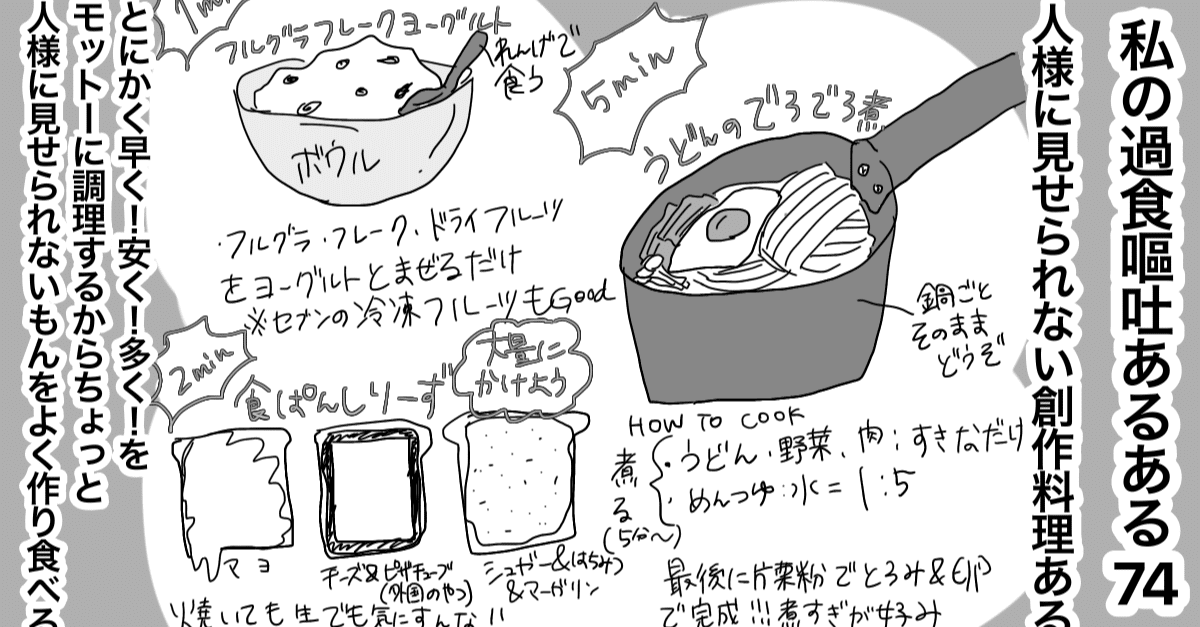 私の過食嘔吐あるある74
人様に見せられない創作料理ある
5min
うどんのでろでろ煮
鍋ごと
そのまま
どうぞ
HOW TO COOK
煮る(5分〜)
・うどん・野菜、肉:すきなだけ
・めんつゆ:水=1:5
最後に片栗粉でとろみ&卵
で完成!!!煮すぎが好み
1min
フルグラフレークヨーグルト
れんげで
食う
ボウル
・フルグラ・フレーク・ドライフルーツ
をヨーグルトとまぜるだけ
※セブンの冷凍フルーツもGood
2min
食ぱんしりーず
大量に
かけよう
マヨ
チーズ&ピザチューブ
(外国のやつ)
シュガー&はちみつ
&マーガリン
焼いても生でも気にすんな!!
とにかく早く!安く!多く!を
モットーに調理するからちょっと
人様に見せられないもんをよく作り食べる